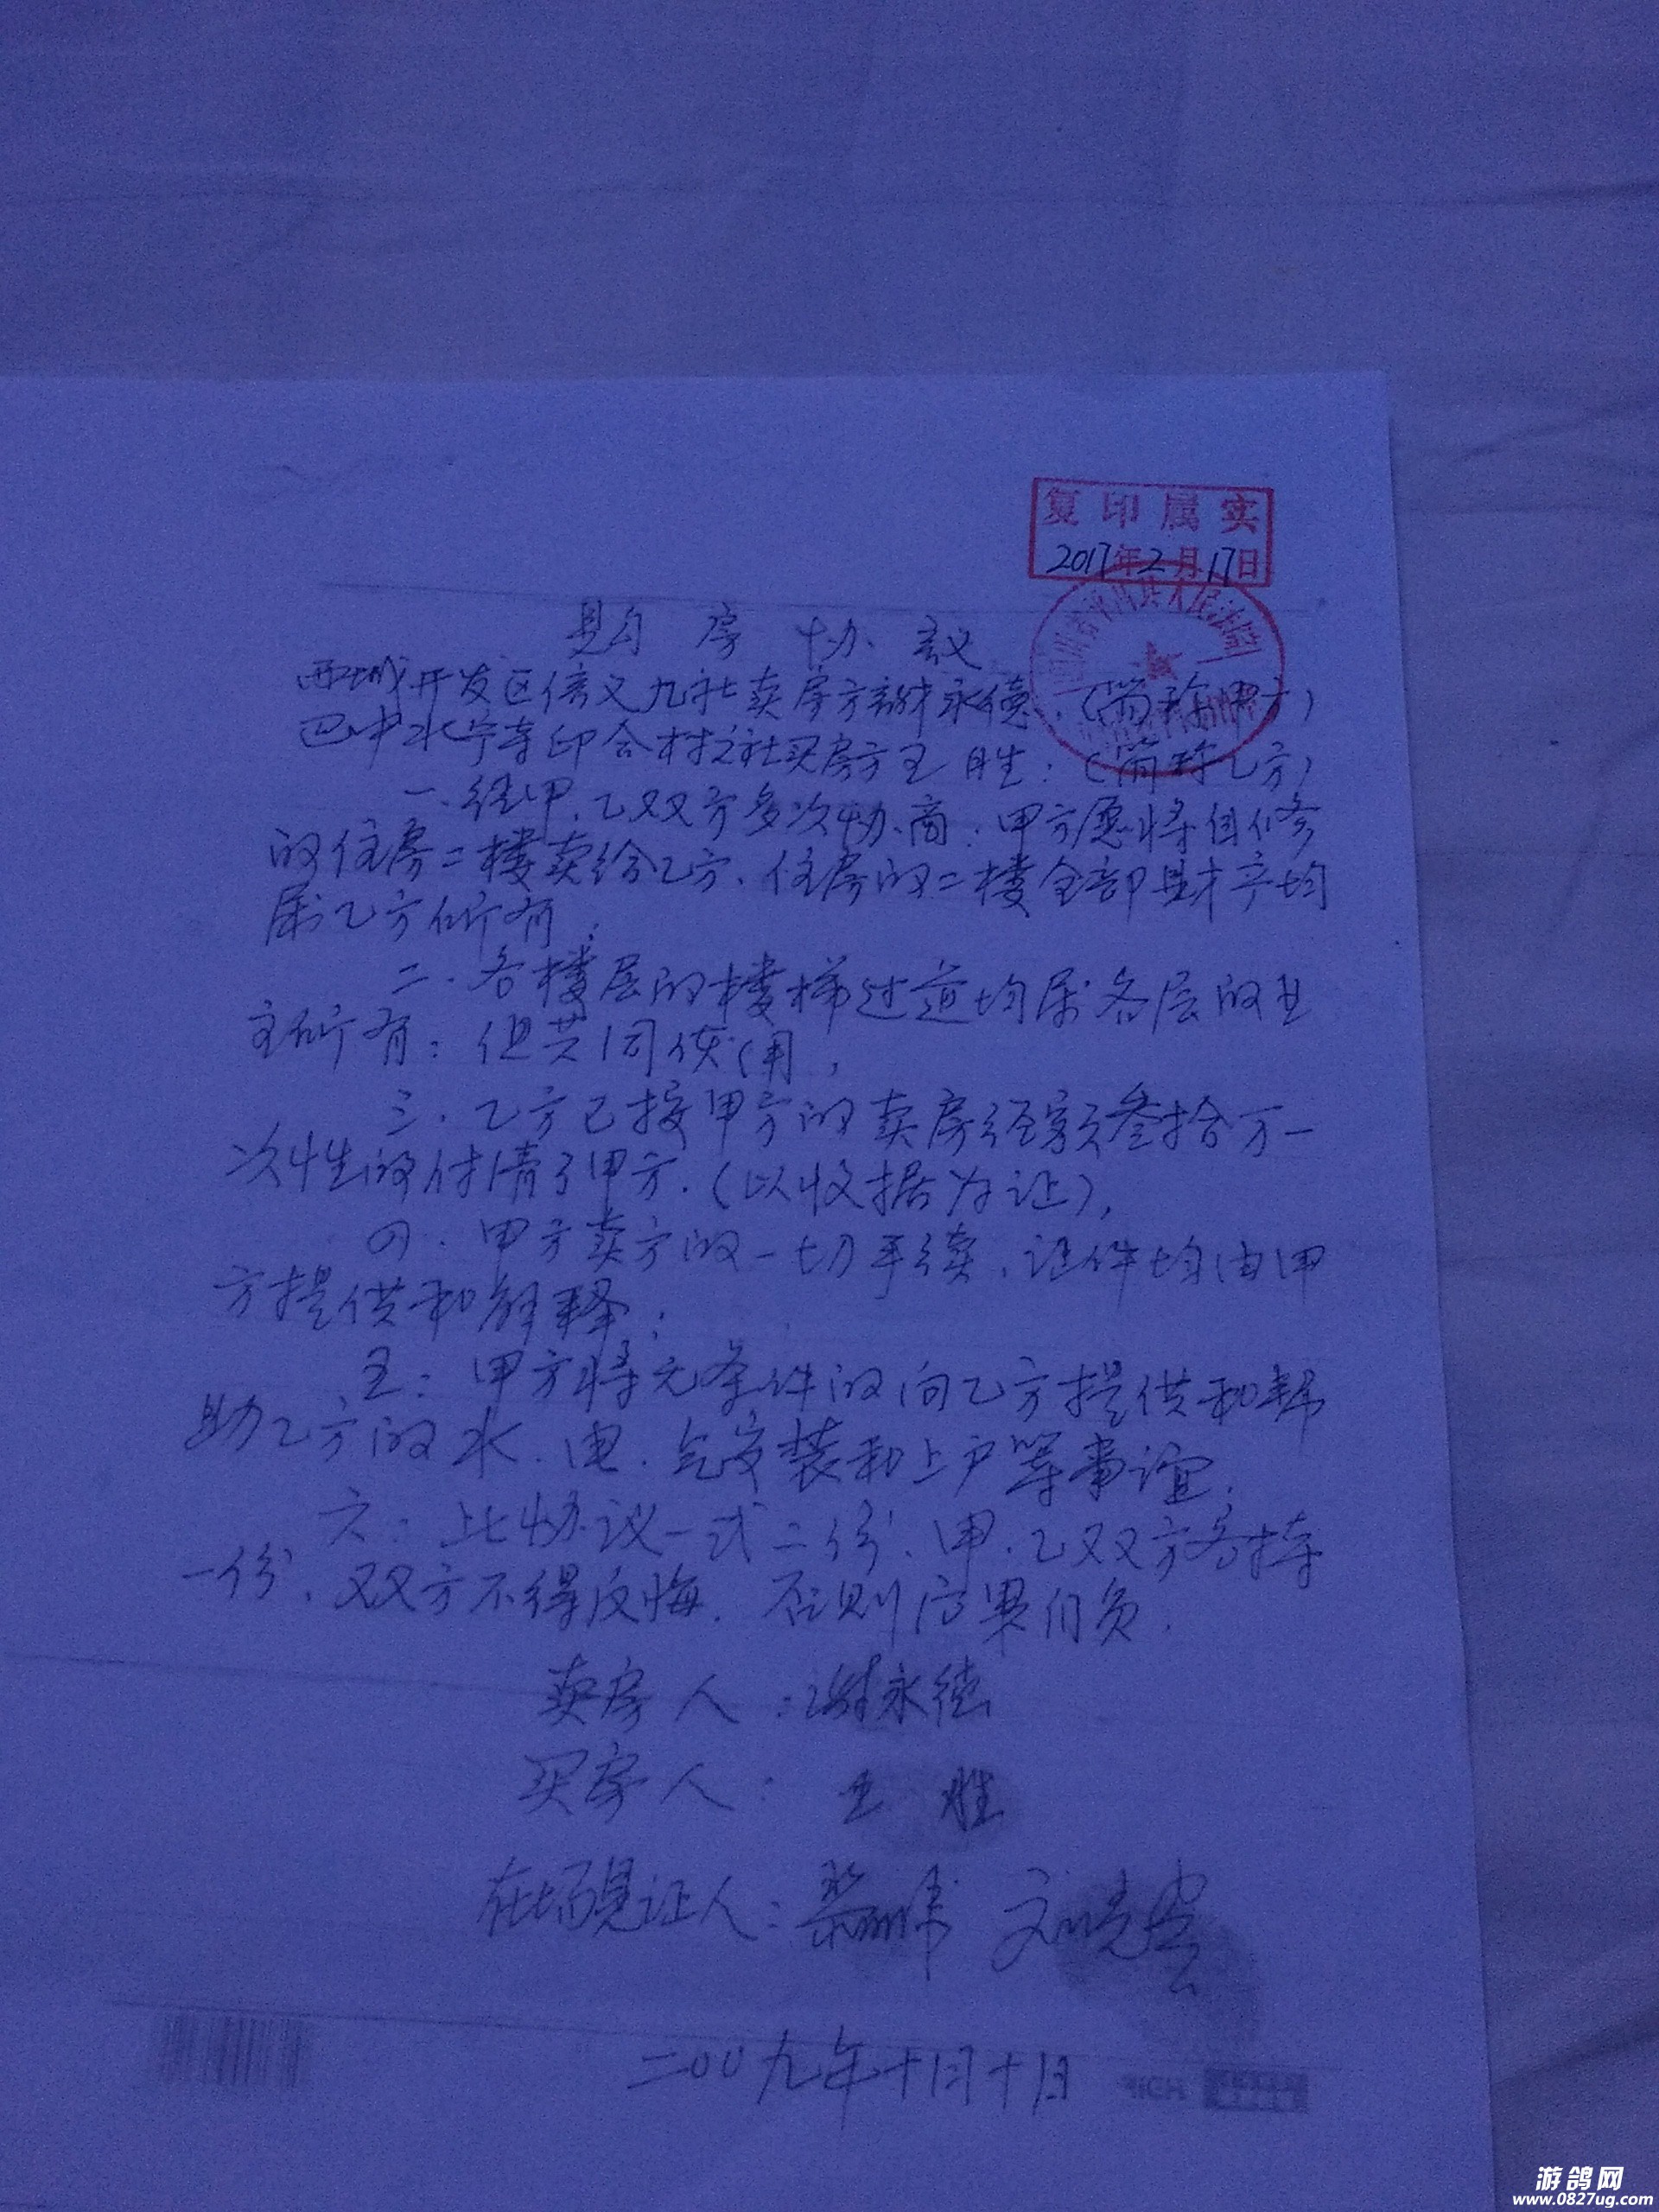 复印属实
2017年2月17日
购房协议
西城开发区信义九社卖房方谢永德:(简称甲方)
巴中水宁寺印合村社买房方王胜:(简称乙方)
一、经甲、乙双方多次协商:甲方愿将自修
的住房二楼卖给乙方、住房的二楼全部财产均
属乙方所有;
二、各楼层的楼梯过道均属各层的业
主所有:但共同使用,
三、乙方已按甲方的卖房经额叁拾万一
次性的付清了甲方.(以收据为证),
四、甲方卖方的一切手续、证件均由甲
方提供和解释;
五:甲方将无条件的向乙方提供和帮
助乙方的水、电、气安装和上户等事谊.
六:此协议一式二份、甲、乙双方各持
一份、双双方不得反悔. 否则后果自负.
卖房人:谢永德
买房人:王胜
在场见证人:
二00九年十月十日
RICH
游鸽网
www.0827ug.com